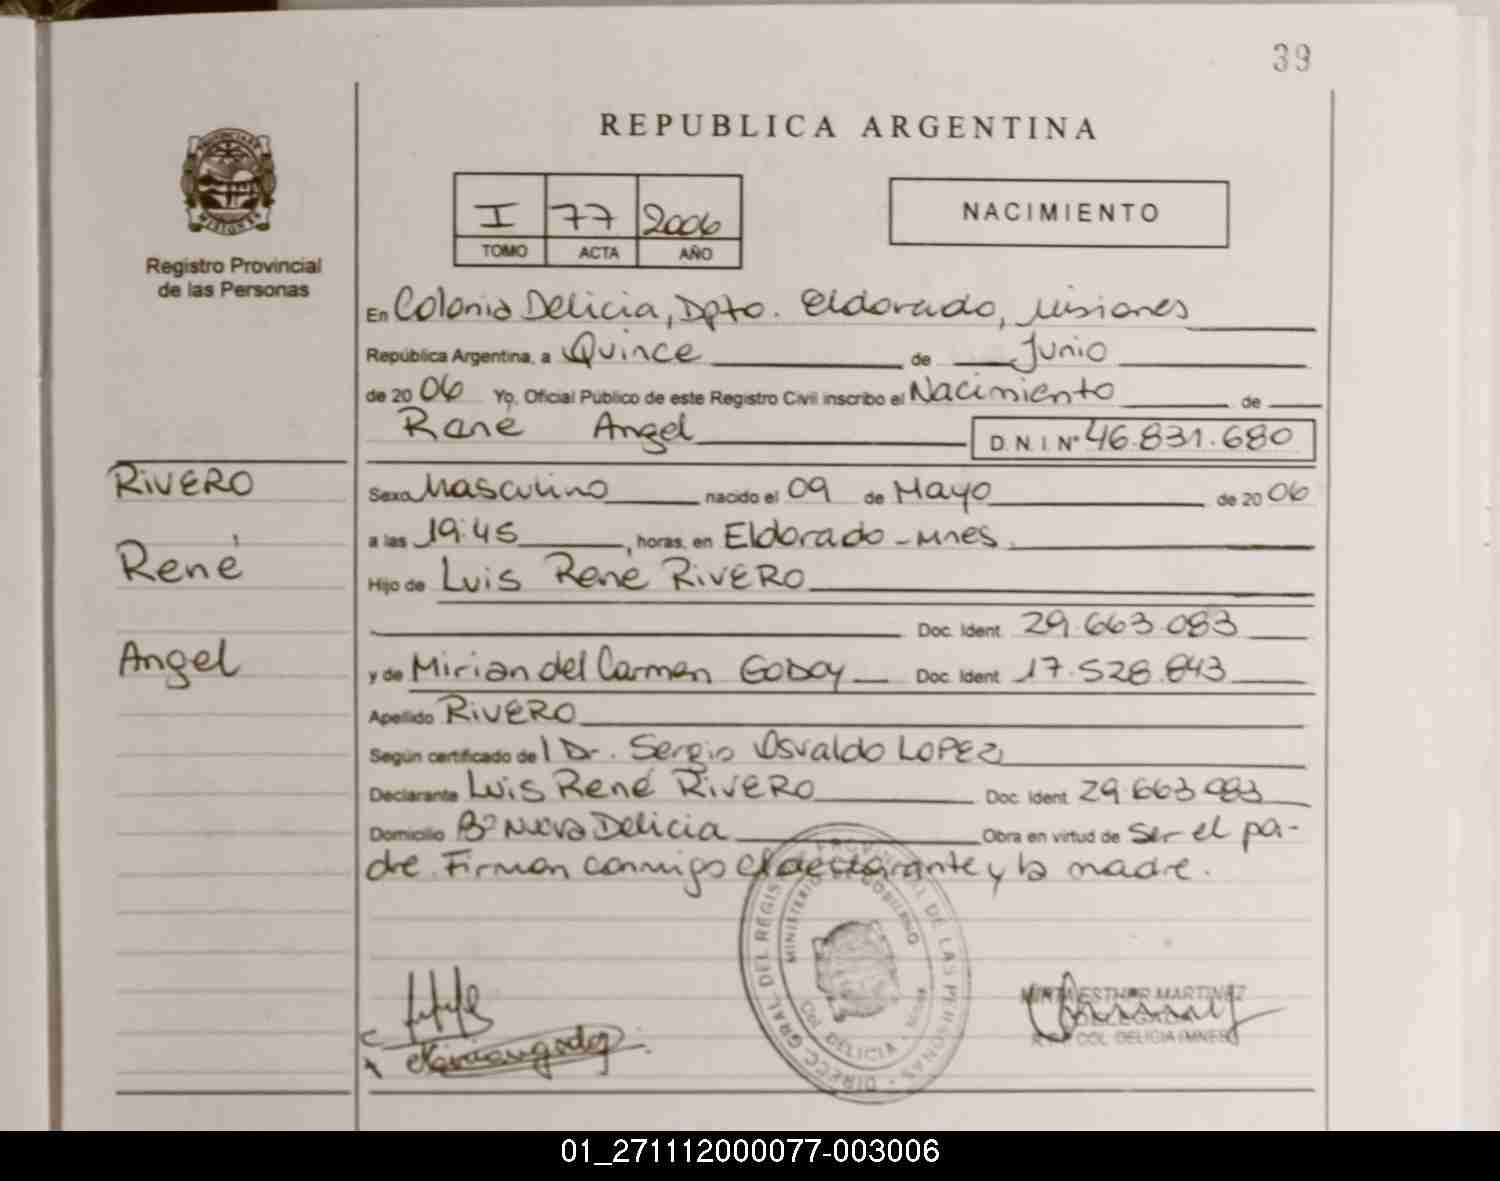 39
REPUBLICA ARGENTINA
I 77 2006
TOMO ACTA AÑO
NACIMIENTO
Registro Provincial
de las Personas
En Colonia Delicia, Dpto. Eldorado, Misiones
República Argentina, a Quince de Junio
de 2006 Yo, Oficial Público de este Registro Civil inscribo el Nacimiento de
René Angel D.N.I.Nº 46.831.680
RIVERO
René
Angel
Sexo Masculino nacido el 09 de Mayo de 2006
a las 19:45, horas, en Eldorado - Mnes.
Hijo de Luis Rene RIVERO
Doc. Ident. 29.663.083
y de Mirian del Carmen GODOY Doc. Ident. 17.528.843
Apellido RIVERO
Según certificado de l Dr. Sergio Osvaldo LOPEZ
Declarante Luis René RIVERO Doc. Ident. 29.663.083
Domicilio Bº Nueva Delicia Obra en virtud de ser el pa-
dre. Firman conmigo el declarante y la madre.
DIREC. GRAL. DEL REGISTRO PROVINCIAL DE LAS PERSONAS
MINISTERIO DE GOBIERNO
DELICIA
ESTHER MARTINEZ
COL. DELICIA (MNES)
01_271112000077-003006